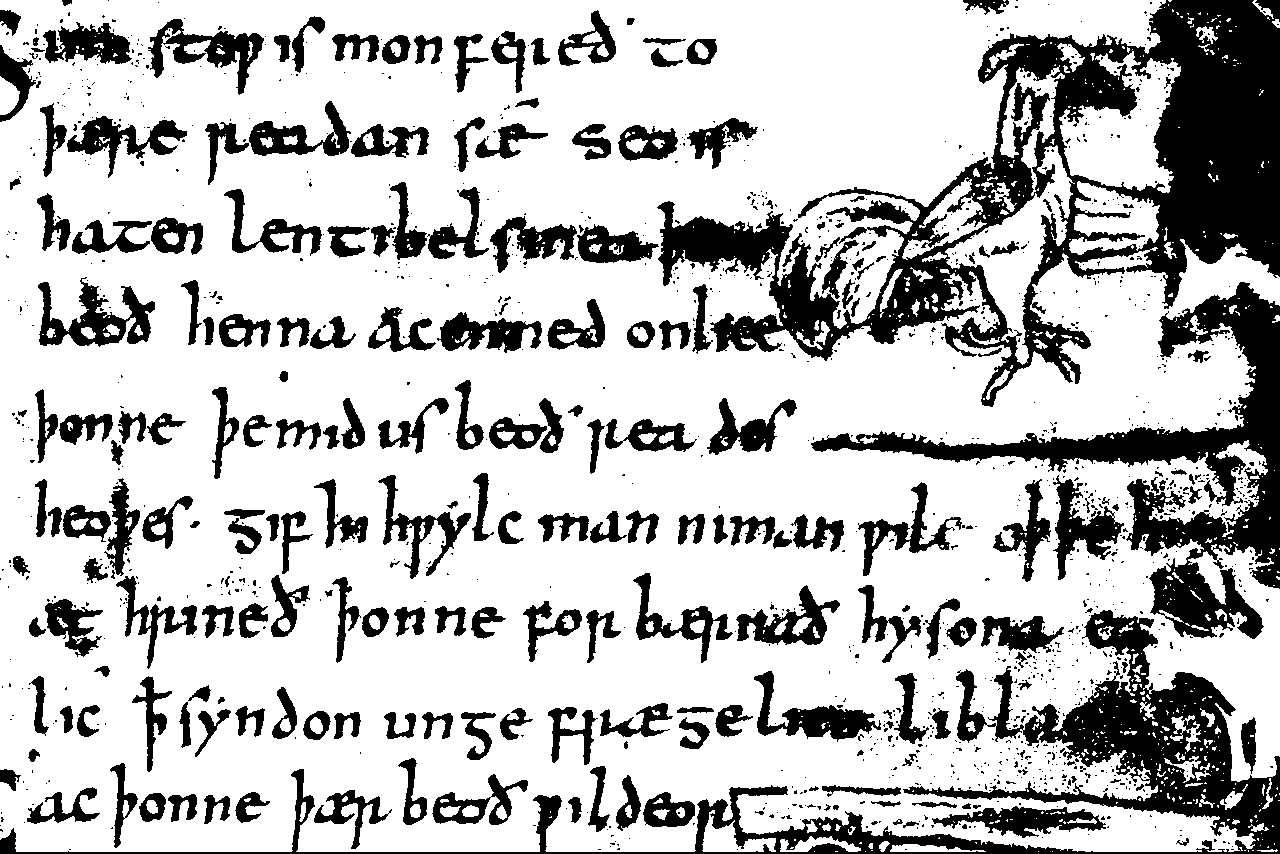 Sum stoƿ is mon færeð to
þære readan sæ seo is
haten lentibelsinea þær
beoð henna acenned onlice
þonne þe mid us beoð reades
heoƿes· ȝif hi hƿylc man niman ƿile oþþe hyra
æt hrineð þonne forbærnað hy sona eal
lic ꝥ syndon unȝefræȝelicu liblac
ac þonne þær beoð ƿildeor